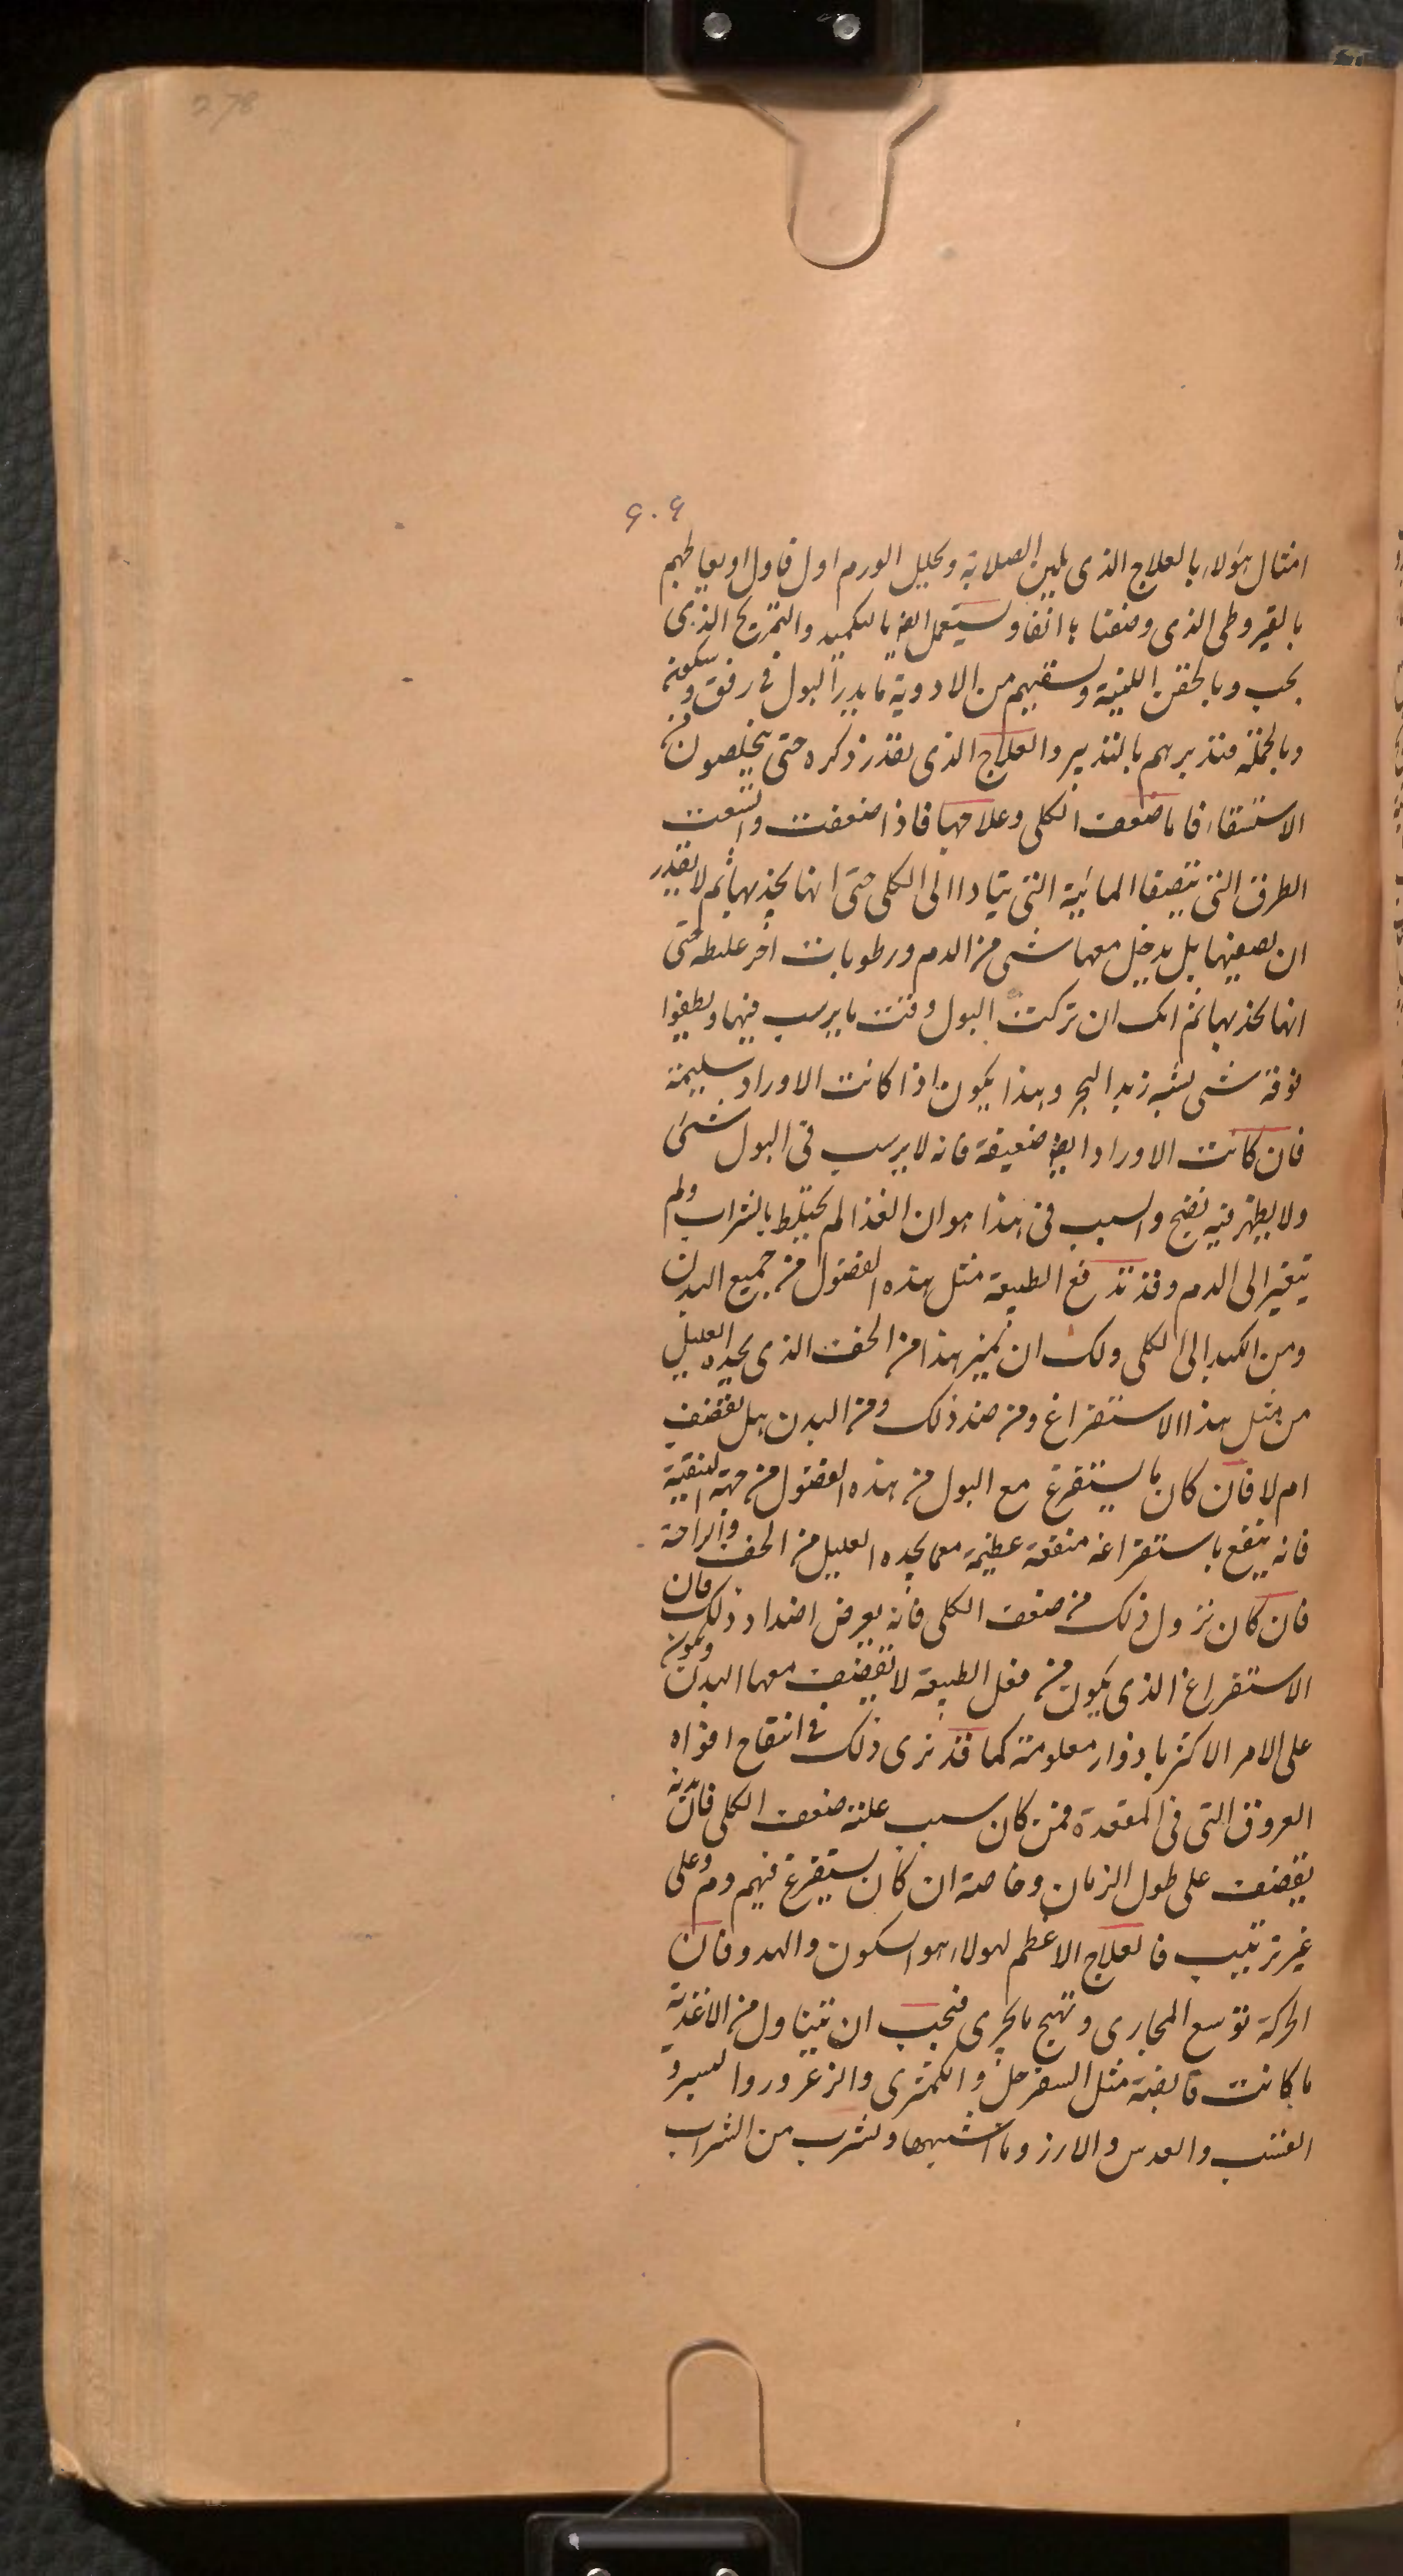 278
٩٠٩
امثال هؤلاء بالعلاج الذى يلين الصلابة ويحليل الورم اول فاول او يعالجهم
بالقيروطى الذى وصفنا ه انفا ويستعمل ايضا بالتكميد والتمريخ الذى
يجب وبالحقن اللينية ويسقيهم من الادوية ما يدر البول فى رفق وسكونة
وبالجملة فتدبرهم بالتدبير والعلاج الذى تقدر ذكره حتى يتخلصون من
الاستسقاء فاما ضعف الكلى وعلاجها فاذا ضعفت واتسعت
الطرق التى تتصفا المائية التى يتادا الى الكلى حتى انها يجذبها ثم لا يقدر
ان يصفيها بل يدخل معها شى من الدم ورطوبات اخر غليظه حتى
انها يجذبها ثم انك ان تركت البول وقت ما يرسب فيها ويطفوا
فوقة شى يشبه زبد البحر وهذا يكون اذا كانت الاوراد سليمة
فان كانت الاوراد ايضا ضعيفة فانه لا يرسب فى البول شئ
ولا يظهر فيه نضج والسبب فى هذا هو ان الغذا لم يختلط بالشراب ولم
يتغير الى الدم وقد تدفع الطبيعة مثل هذه الفضول من جميع البدن
ومن الكبد الى الكلى ولك ان تميز هذا من الخف الذى يجده العليل
من مثل هذا الاستفراغ ومن ضد ذلك ومن البدن هل يقضف
ام لا فان كان ما يستفرغ مع البول من هذه الفضول من جهة التنقية
فانه ينتفع باستفراغه منفعة عظيمة مع ما يجده العليل من الخف والراحة
فان كان نزول ذلك من ضعف الكلى فانه يعرض اضداد ذلك فان
الاستفراغ الذى يكون من فعل الطبيعة لا يقضف معها البدن ويكون
على الامر الاكثر بادوار معلومة كما قد نرى ذلك فى انتفاح افواه
العروق التى فى المقعدة فمن كان سبب علته ضعف الكلى فان بدنه
يقضف على طول الزمان وخاصة ان كان يستفرغ فيهم دم وعلى
غير ترتيب فالعلاج الاعظم لهولاء هو السكون والهدو فان
الحركة توسع المجارى وتهيج ما يجرى فيجب ان تتناول من الاغذية
ما كانت قابضة مثل السفرجل والكمثرى والزعرور والبسر و
القسب والعدس والارز وما اشبهها ويشرب من الشراب